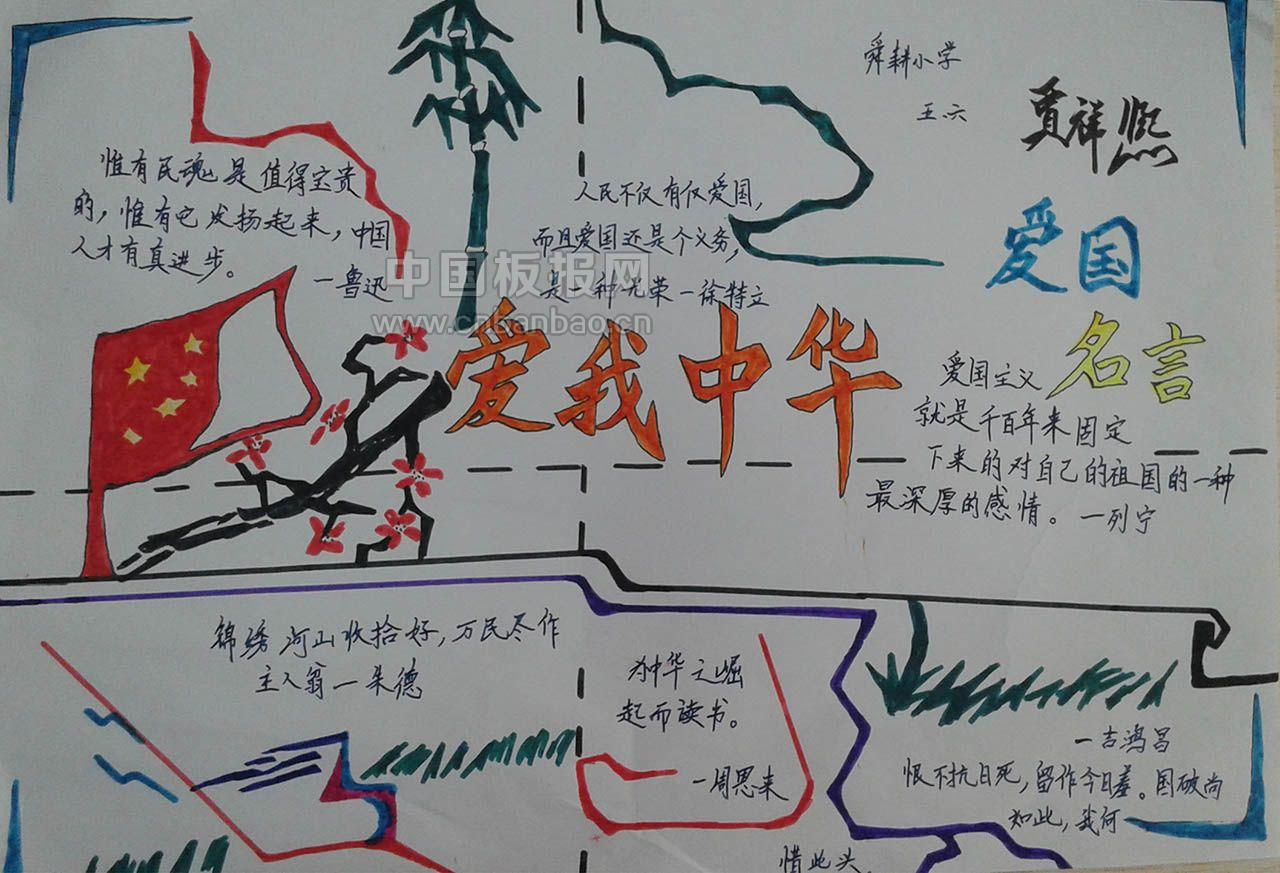 舜耕小学
王六
贾祥熙
惟有民魂是值得宝贵
的，惟有它发扬起来，中国
人才有真进步。
一鲁迅
人民不仅有仅爱国，
而且爱国还是个义务，
是一种光荣一徐特立
中国板报网
www.cnbanbao.cn
爱我中华
爱国
名言
爱国主义
就是千百年来固定
下来的对自己的祖国的一种
最深厚的感情。一列宁
锦绣河山收拾好，万民尽作
主人翁一朱德
为中华之崛
起而读书。
一周恩来
一吉鸿昌
恨不抗日死，留作今日羞。国破尚
如此，我何
惜此头